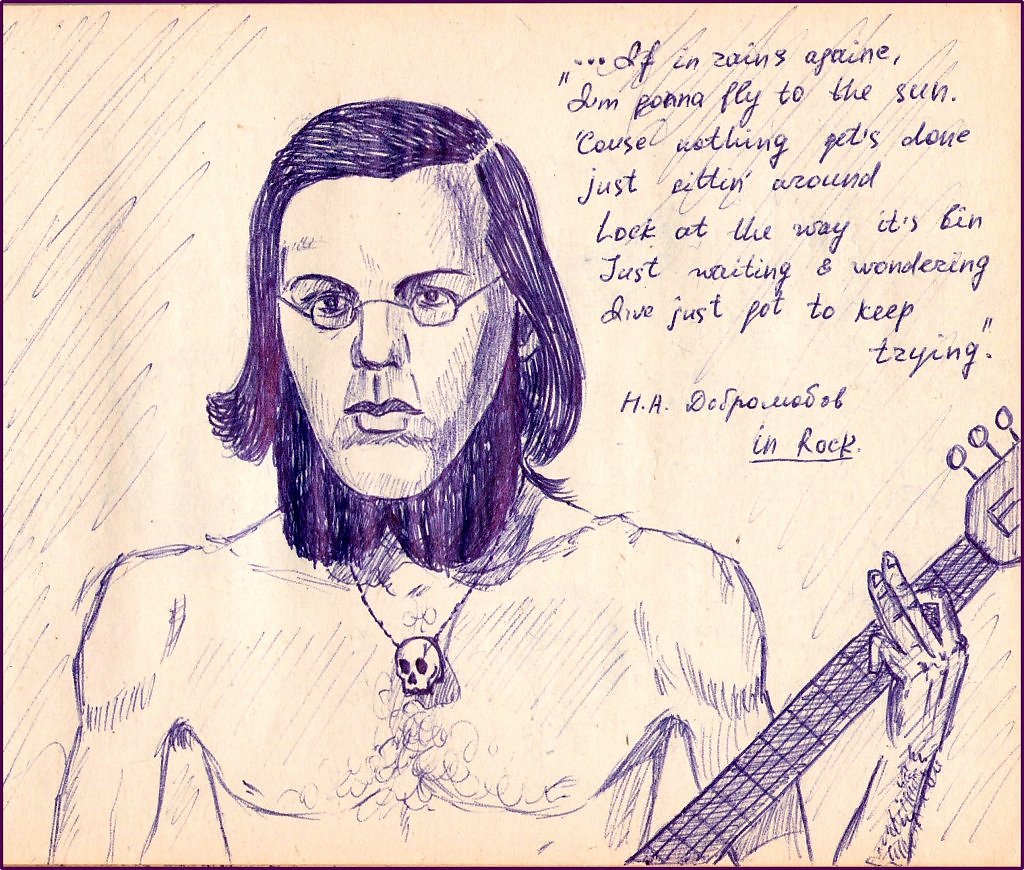 "... If in rains againe,
I'm gonna fly to the sun.
'Couse nothing get's done
just sittin' around
Look at the way it's bin
Just waiting & wondering
I've just got to keep
trying."
Н.А. Добролюбов
in Rock.